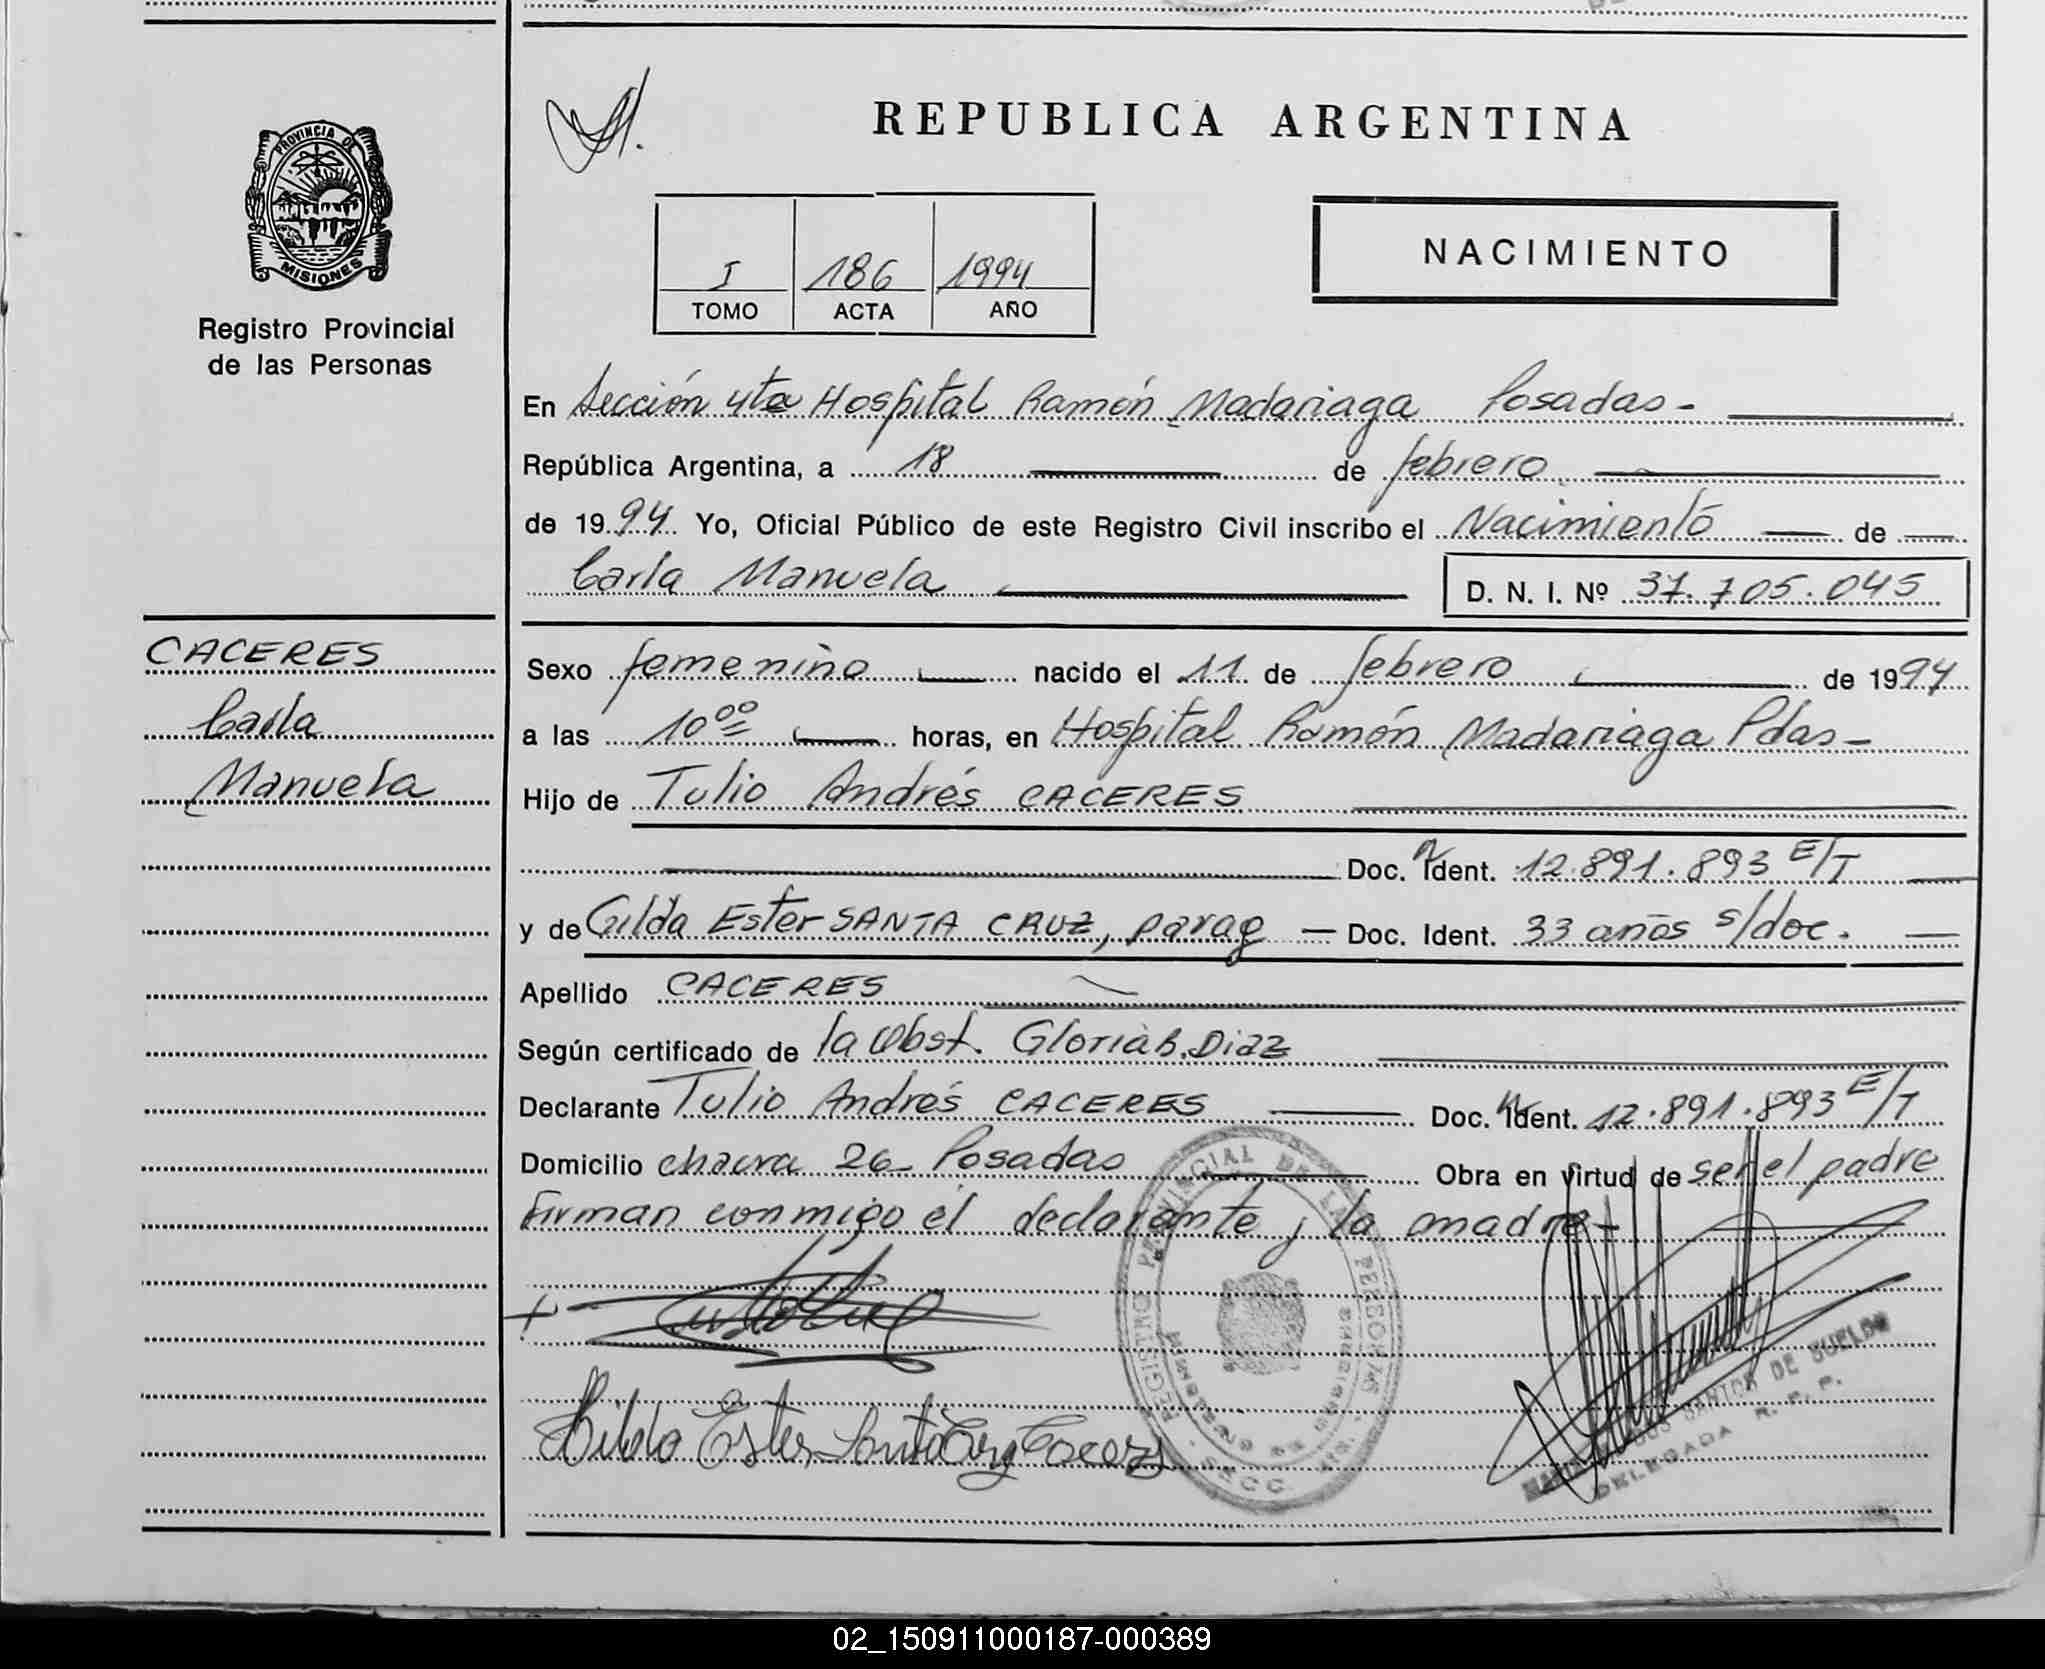 REPUBLICA ARGENTINA
PROVINCIA DE
MISIONES
Registro Provincial
de las Personas
I 186 1994
TOMO ACTA AÑO
NACIMIENTO
En Sección 4ta Hospital Ramón Madariaga Posadas-
República Argentina, a 18 de febrero
de 1994 Yo, Oficial Público de este Registro Civil inscribo el Nacimiento de
Carla Manuela D. N. I. Nº 37.705.045
CACERES
Carla
Manuela
Sexo femenino nacido el 11 de febrero de 1994
a las 10⁰⁰ horas, en Hospital Ramón Madariaga Pdas-
Hijo de Tulio Andrés CACERES
Doc. Ident. 12.891.893 E/T
y de Gilda Ester SANTA CRUZ, parag — Doc. Ident. 33 años s/doc.
Apellido CACERES
Según certificado de la Obst. Gloria B. Diaz
Declarante Tulio Andrés CACERES Doc. Ident. 12.891.893 E/T
Domicilio chacra 26 Posadas Obra en virtud de ser el padre
Firman conmigo el declarante y la madre-
REGISTRO PROVINCIAL DE LAS PERSONAS
SECC.
DE SUELDO
DELEGADA R. P. P.
02_150911000187-000389